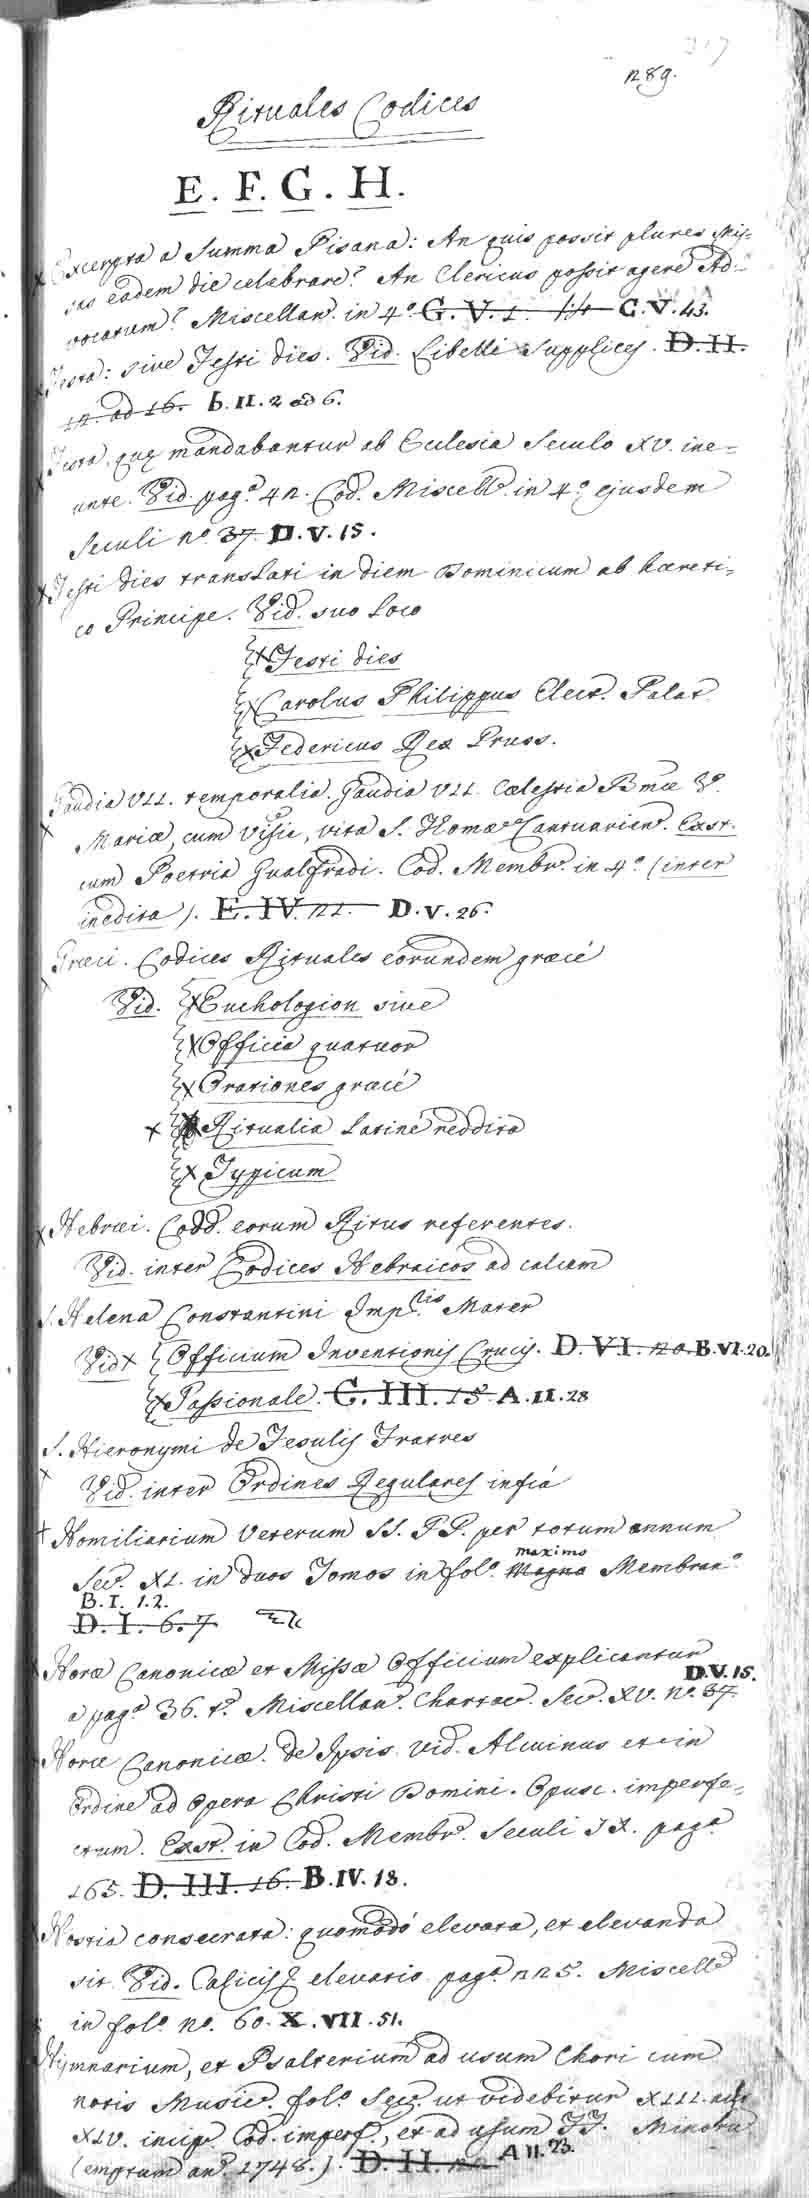 1289.
Rituales Codices
E. F. G. H.
Excerpta a Summa Pisana: An quis possit plures Mis-
sas eadem die celebrare? An Clericus possit agere Ad-
vocatum? Miscellan. in 4º G. V. 1. C. V. 43.
Festa: sive Festi dies. Vid. Libelli Supplices. D. II.
12. ad 16. b. II. 2 ad 6.
Festa, quæ mandabantur ab Ecclesia Seculo XV. ine=
unte. Vid. pag.ª 42. Cod. Miscell. in 4º ejusdem
Seculi nº 37. D. V. 15.
Festi dies translati in diem Dominicum ab hæreti=
co Principe. Vid. suo loco
Festi dies
Carolus Philippus Elect. Palat.
Federicus Rex Pruss.
Gaudia VII. temporalia. Gaudia VII. Cælestia Bmæ V.
Mariæ, cum Visie, vita S. Thomæ Cantuarien. Exst.
cum Poetria Gualfradi. Cod. Membr. in 4º (inter
inedita). E. IV. 21. D. V. 26.
Græci. Codices Rituales eorundem græcè
Vid. Euchologion sive
Officia quatuor
Orationes græcè
Ritualia Latinè reddita
Typicum
Hebræi. Codd. eorum Ritus referentes.
Vid. inter Codices Hebraicos ad calcem
S. Helena Constantini Imp.ris Mater
Vid Officium Inventionis Crucis. D. VI. 20. B. VI. 20.
Passionale. C. III. 15. A. II. 28
S. Hieronymi de Fesulis Fratres
Vid. inter Ordines Regulares infrà
Homiliarium Veterum SS. PP. per totum annum
Sec. XI. in duos Tomos in fol. Magno maximo Membran.
B. I. 1. 2.
D. I. 6. 7
Horæ Canonicæ et Missæ Officium explicantur
a pag.ª 36. tº. Miscellan. Chartac. Sec. XV. nº. 37. D. V. 15.
Horæ Canonicæ. de Ipsis Vid. Alcuinus et in
Ordine ad Opera Christi Domini. Opusc. imperfe=
ctum. Exst. in Cod. Membr. Seculi IX. pag.ª
165. D. III. 16. B. IV. 18.
Hostia consecrata: quomodò elevata, et elevanda
sit. Vid. Calicis elevatio pag.ª 225. Miscell.
in folº nº. 60. X. VII. 51.
Hymnarium, et Psalterium ad usum Chori cum
notis Music. folº Sec. ut videbitur XIII. aut
XIV. incip. Cod. imperf., et ad usum FF. Minoru
(emptum an. 1748.). D. II. A II. 23.